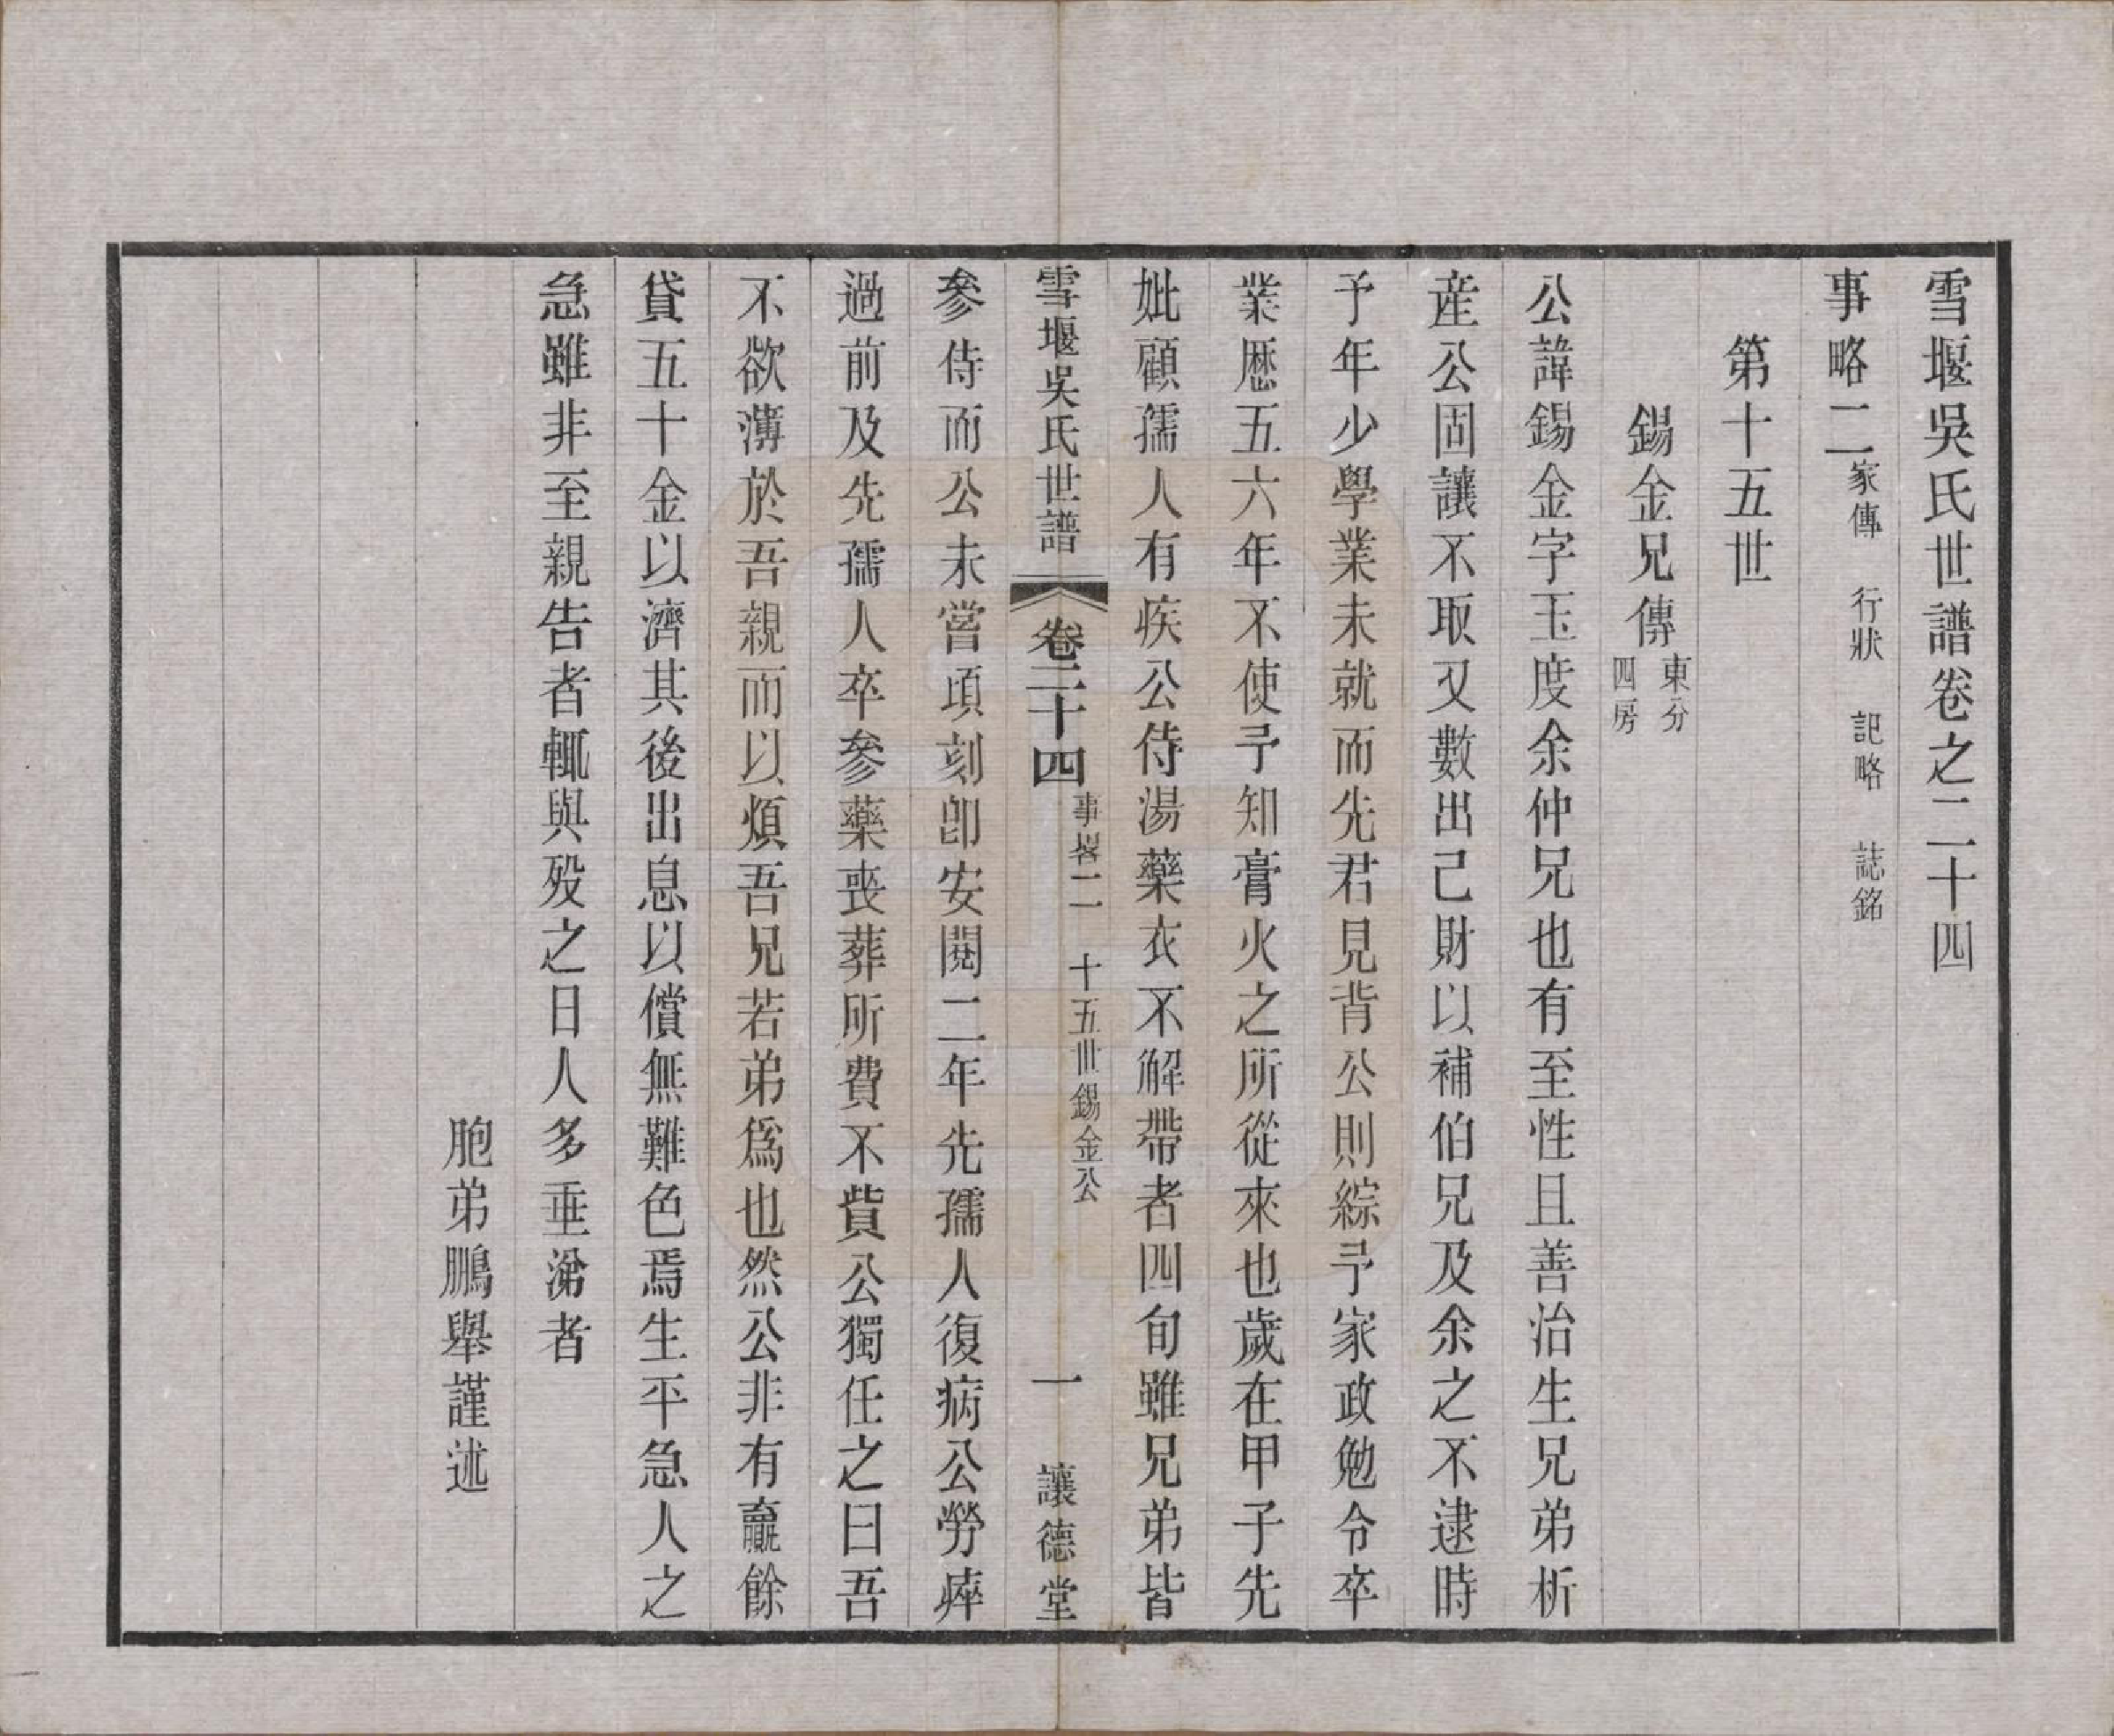 雪堰吳氏世譜卷之二十四
事略二 家傳 行狀 記略 誌銘
第十五世
錫金兄傳 東分四房
公諱錫金字玉度余仲兄也有至性且善治生兄弟析
産公固讓不取又數出己財以補伯兄及余之不逮時
予年少學業未就而先君見背公則綜予家政勉令卒
業歷五六年不使予知膏火之所從來也歲在甲子先
妣顧孺人有疾公侍湯藥衣不解帶者四旬雖兄弟皆
雪堰吳氏世譜 卷二十四 事畧二 十五世錫金公 一 讓德堂
參侍而公未嘗頃刻卽安閱二年先孺人復病公勞瘁
過前及先孺人卒參藥喪葬所費不貲公獨任之曰吾
不欲薄於吾親而以煩吾兄若弟爲也然公非有贏餘
貸五十金以濟其後出息以償無難色焉生平急人之
急雖非至親告者輒與歿之日人多垂涕者
胞弟鵬舉謹述